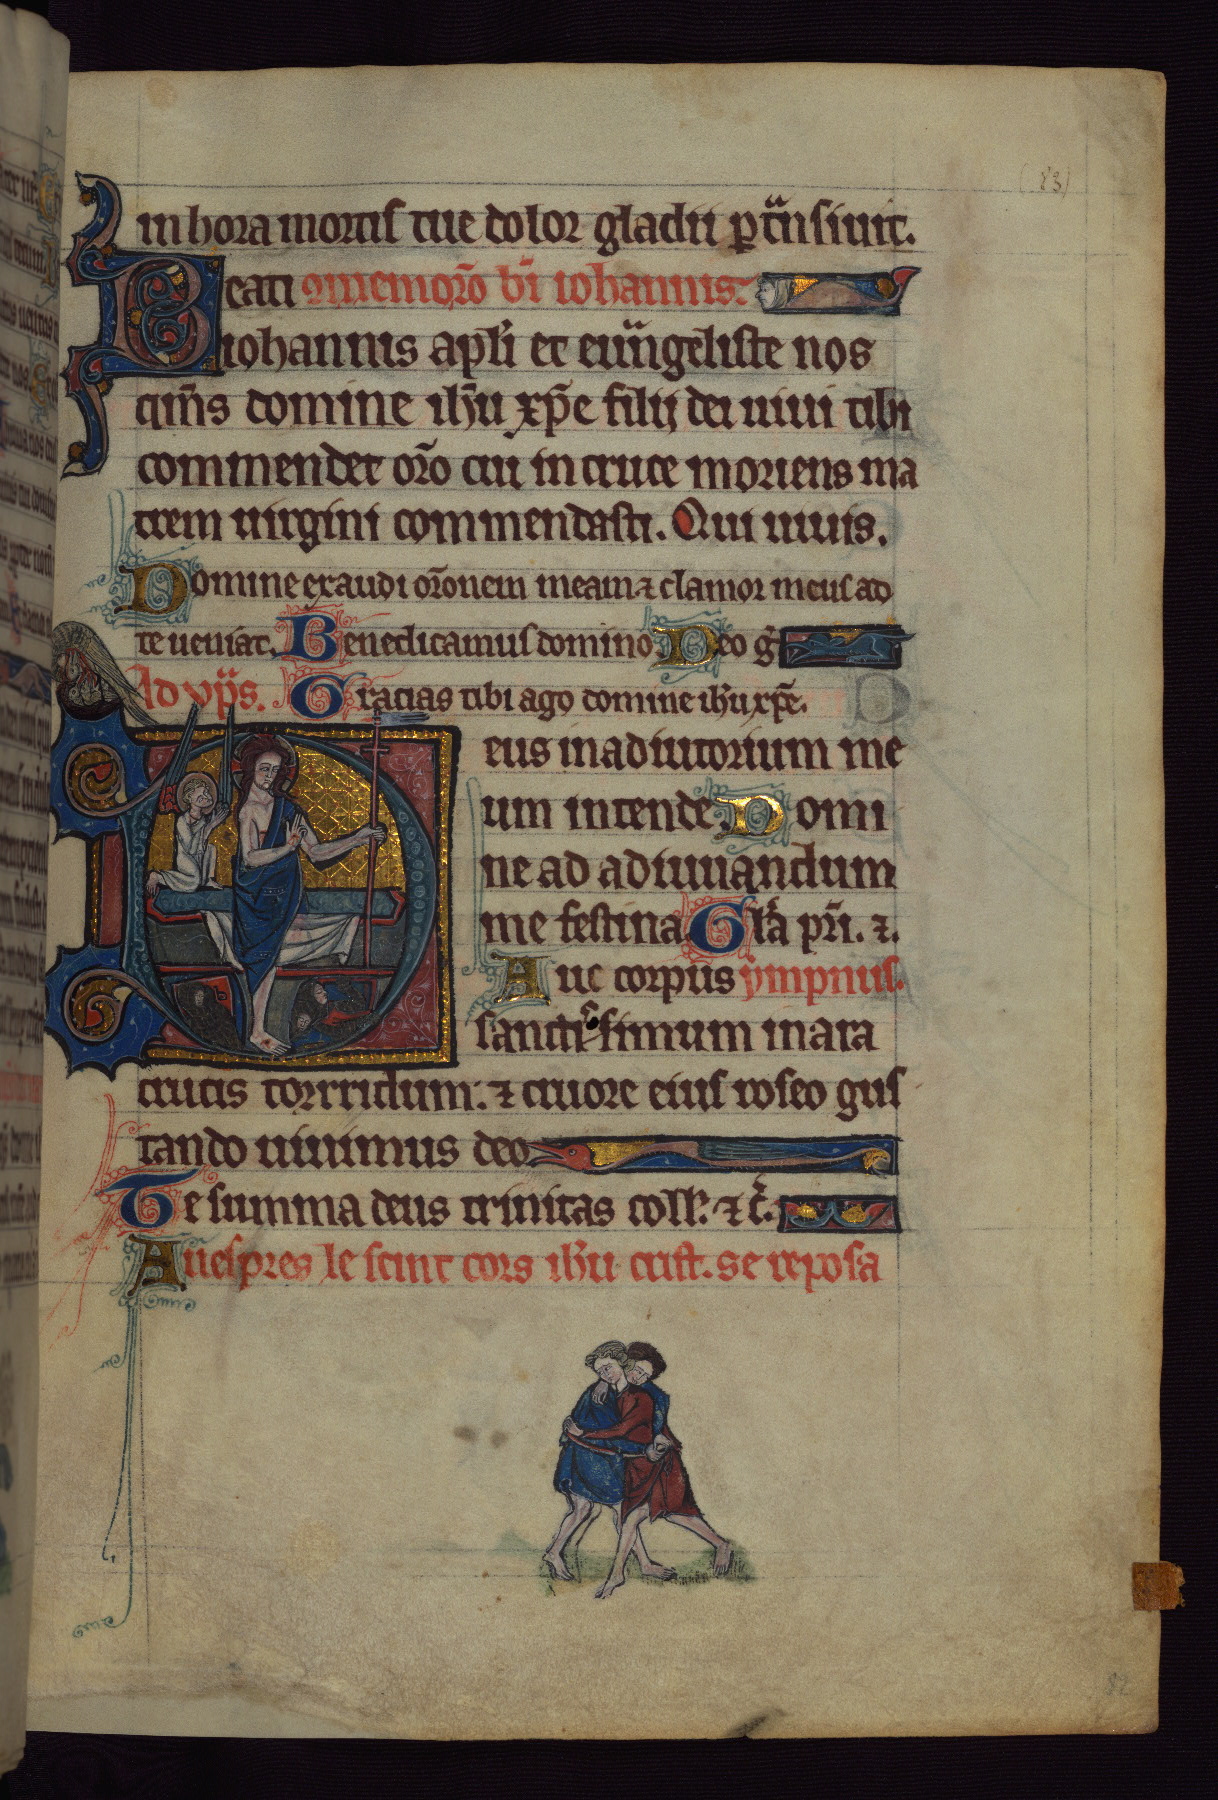 (83)
in hora mortis tue dolor gladii ꝑt̃nsiuit.
Beati memorõ bĩ iohannis.
iohannis apl̃i et euũngeliste nos
qm̃s domine ih̃u xp̃e filij dei uiui tibi
commendet or̃o cui in cruce moriens ma
trem uirgini commendasti. Qui uiuis.
Domine exaudi or̃onem meam ⁊ clamor meus ad
te ueniat. Benedicamus domino Deo g̃
Ad vp̃s. Gracias tibi ago domine ih̃u xp̃e.
Deus in adiutorium me
um intende Domi
ne ad adiuuandum
me festina Gl̃a pr̃i. ⁊.
Aue corpus ympnus.
sanctissimum in ara
crucis torridum: ⁊ cruore eius roseo gus
tando uiuimus deo
Te summa deus trinitas coll̃. ⁊ c̃.
A uespres le seint cors ih̃u crist. se reposa
82